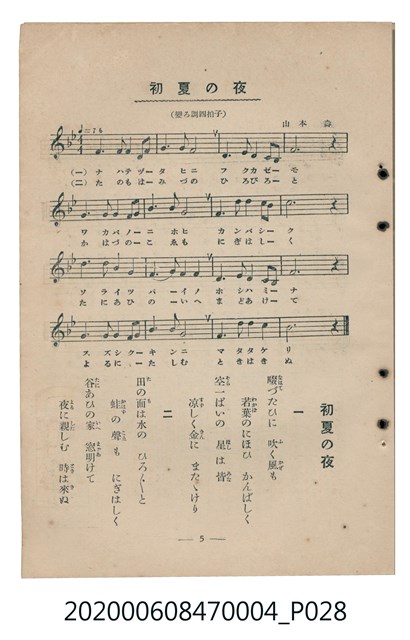 初夏の夜
(變ろ調四拍子)
山本壽
♩=76
(一) ナハテヅータヒニ フクカゼーモ
(二) たのもはーみづの ひろびろーと
ワカバノーニホヒ カンバシーク
かはづのーこゑも にぎはしーく
ソライツパーイノ ホシハミーナ
たにあひのーいへ まどあけーて
スズシクーキンニ マタタケリ
よるにしーたしむ ときはきぬ
初夏の夜
一
畷づたひに 吹く風も
若葉のにほひ かんばしく
空一ぱいの 星は皆
涼しく金に またゝけり
二
田の面は水の ひろ〴〵と
蛙の聲も にぎはしく
谷あひの家 窓明けて
夜に親しむ 時は來ぬ
— 5 —
202000608470004_P028